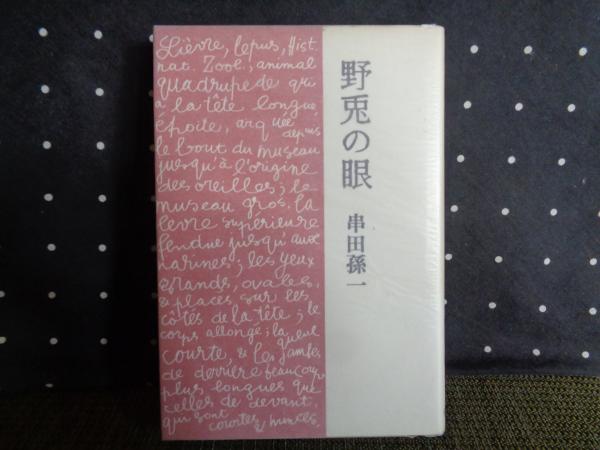 野兎の眼
串田孫一
Lièvre, lepus, Hist.
nat. Zool., animal
quadrupede qui
a la tête longue
étroite, arquée depuis
le bout du museau
jusqu'à l'origine
des oreilles; le
museau gros, la
levre superieure
fendue jusqu'aux
narines; les yeux
grands, ovales,
& places sur les
côtés de la tête; le
corps allongé; la queue
courte, & les jambes
de derrière beaucoup
plus longues que
celles de devant,
qui sont courtes & minces.